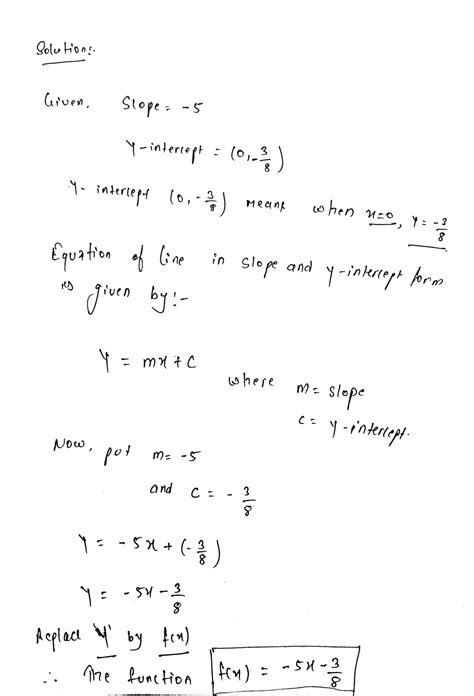 Solution:-
Given, Slope = -5
Y-intercept = (0, -3/8)
Y-intercept (0, -3/8) means when x=0, Y = -3/8
Equation of line in slope and y-intercept form
is given by:-
Y = mx + c
where m = slope
c = y-intercept.
Now, put m = -5
and c = -3/8
Y = -5x + (-3/8)
Y = -5x - 3/8
Replace 'Y' by f(x)
∴ The function f(x) = -5x - 3/8